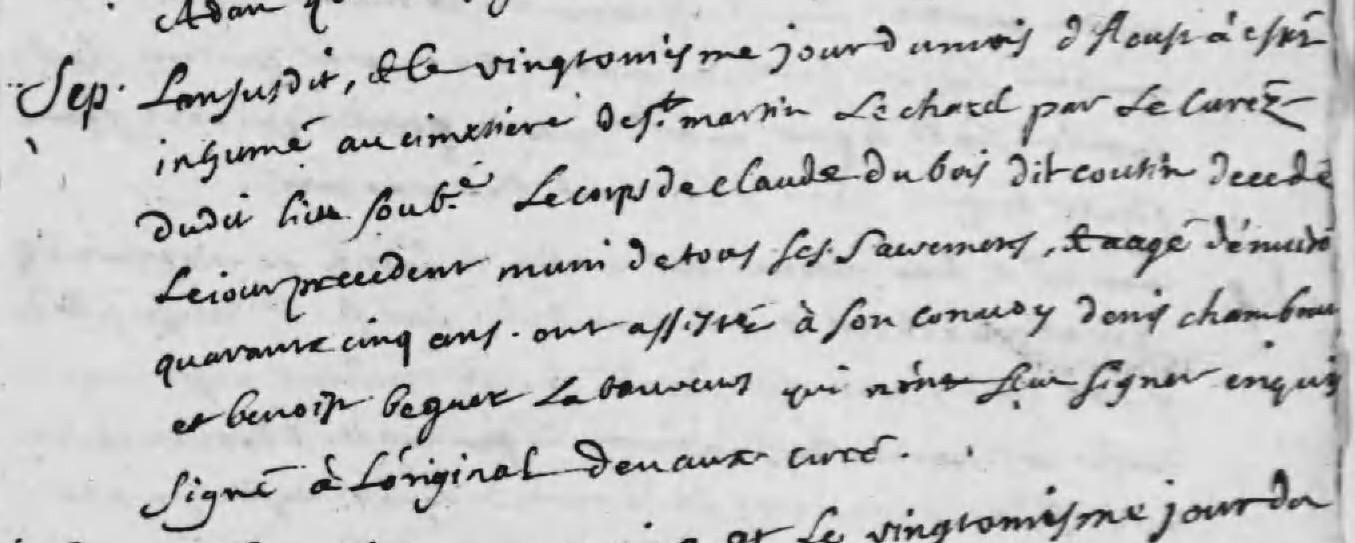 Adan q
Sep. Lansusdit, & le vingtoniesme jour dumois d'Aoust à esté
inhumé au cimetiere de st. martin Lechard par Le Curéz
dudit lieu soub.é Le corps de Claude dubois dit coutin decedé
Le jour precedent muni de tous ses sacremens, & aagé d'énuiró
quarante cinq ans. ont assisté à son conuoy denis chambau
et benoist beguet Laboureurs qui n'ont sceu signer enquis
signé à L'original deuaux curé.
et Le vingtoniesme jour du